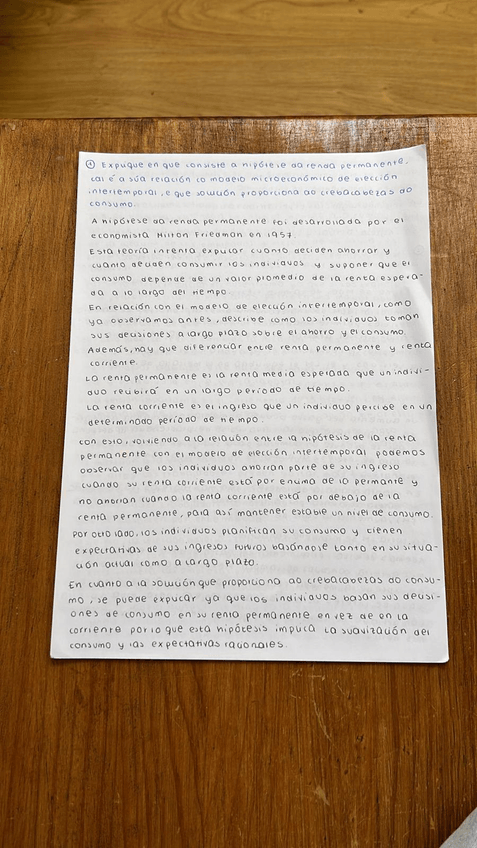 ① Explique en que consiste a hipótese da renda permanente,
cal é a súa relación co modelo microeconómico de elección
intertemporal, e que solución proporciona ao crebacabezas do
consumo.
A hipótese da renda permanente foi desarrollada por el
economista Milton Friedman en 1957.
Esta teoría intenta explicar cuánto deciden ahorrar y
cuánto deciden consumir los individuos y suponer que el
consumo depende de un valor promedio de la renta espera-
da a lo largo del tiempo.
En relación con el modelo de elección intertemporal, como
ya observamos antes, describe como los individuos toman
sus decisiones a largo plazo sobre el ahorro y el consumo.
Además, hay que diferenciar entre renta permanente y renta
corriente.
La renta permanente es la renta media esperada que un indivi-
duo recibirá en un largo período de tiempo.
La renta corriente es el ingreso que un individuo percibe en un
determinado período de tiempo.
Con esto, volviendo a la relación entre la hipótesis de la renta
permanente con el modelo de elección intertemporal podemos
observar que los individuos ahorran parte de su ingreso
cuando su renta corriente está por encima de la permante y
no ahorran cuando la renta corriente está por debajo de la
renta permanente, para así mantener estable un nivel de consumo.
Por otro lado, los individuos planifican su consumo y tienen
expectativas de sus ingresos futuros basándose tanto en su situa-
ción actual como a largo plazo.
En cuanto a la solución que proporciona ao crebacabezas do consu-
mo, se puede explicar ya que los individuos basan sus decisi-
ones de consumo en su renta permanente en vez de en la
corriente por lo que esta hipótesis implica la suavización del
consumo y las expectativas racionales.